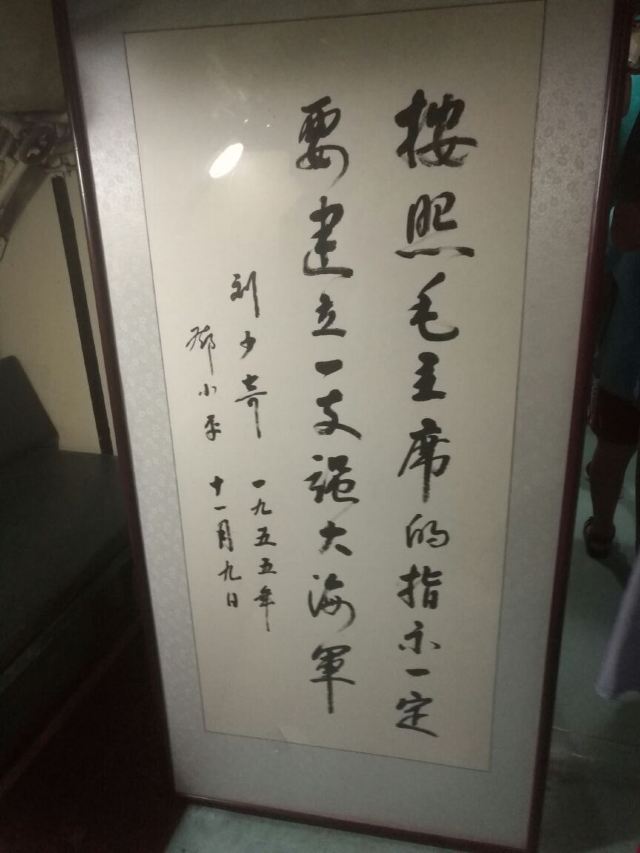 按照毛主席的指示一定
要建立一支强大海軍
刘少奇
邓小平
一九五五年
十一月九日